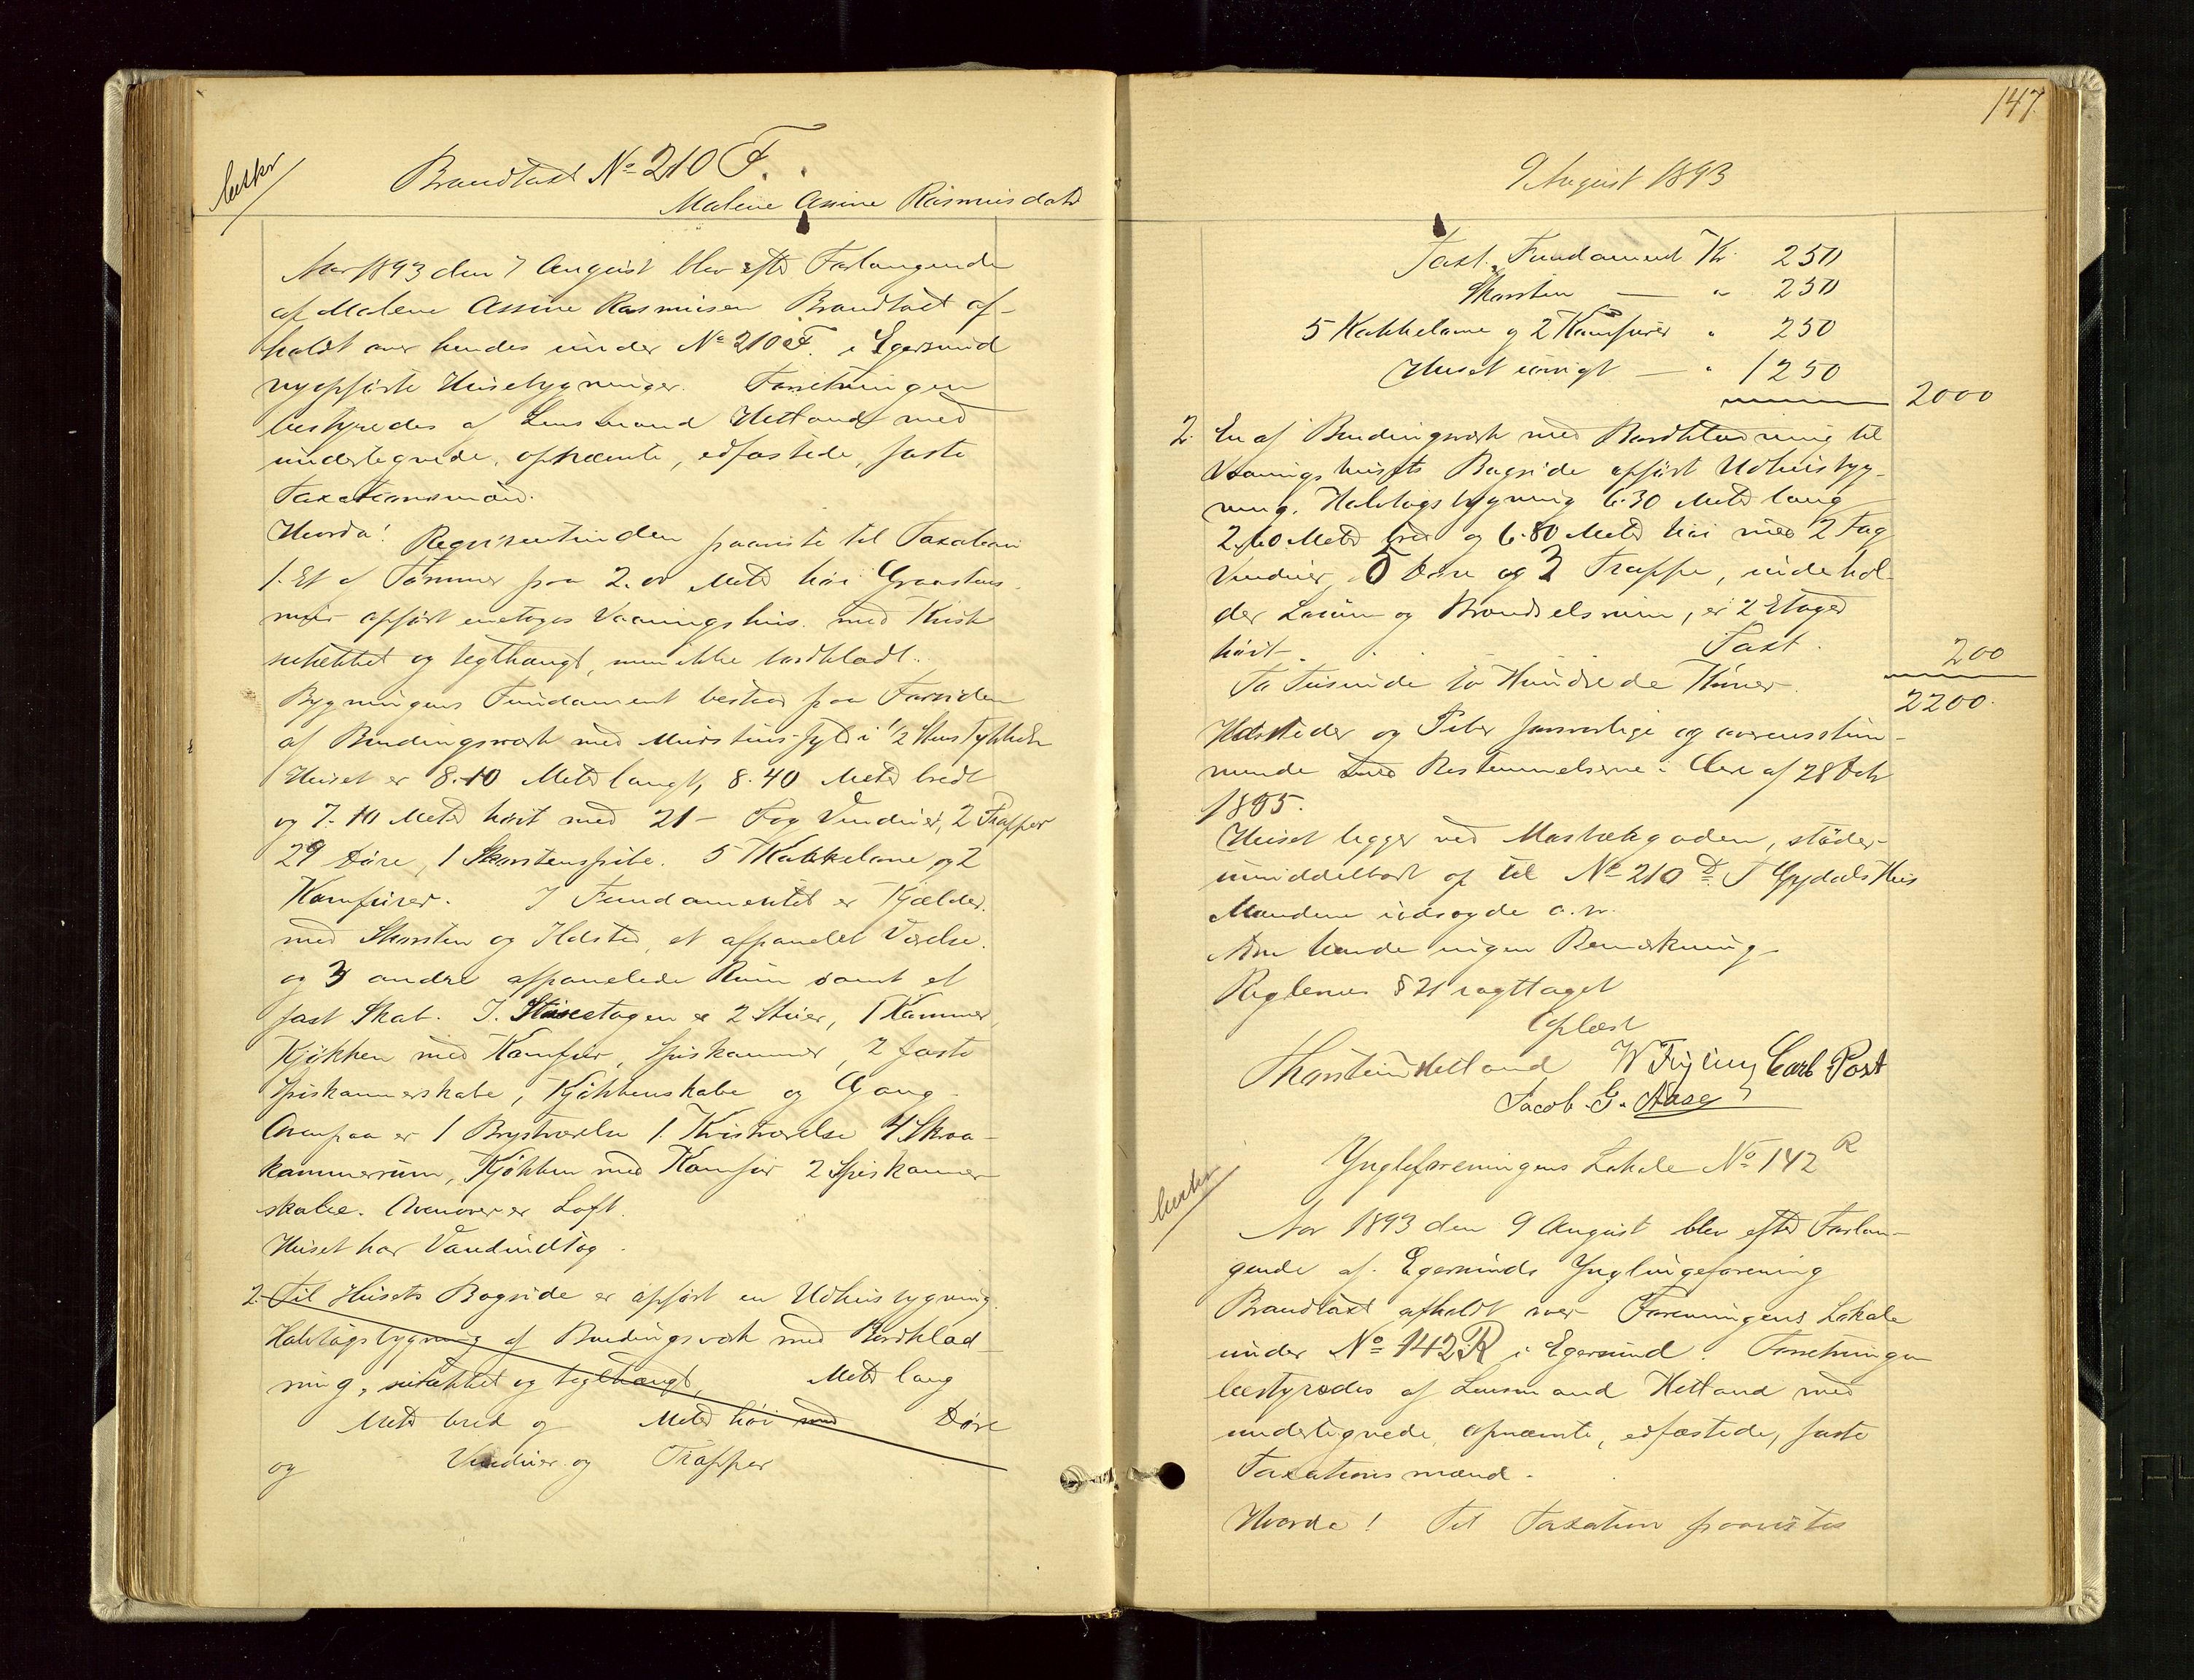 beskr
Brandtaxt No 210 F.
Malene Assine Rasmusdatr
Aar 1893 den 7 August blev efter Forlangende
af Malene Assine Rasmusen Brandtaxt af-
holdt over hendes under No 210 F. i Egersund
nyopførte Husebygninger. Forretningen
bestyredes af Lensmand Hetland med
undertegnede, opnævnte, edfæstede, faste
Taxationsmænd.
Hvorda! Requirentinden paaviste til Taxation
1. Et af Tømmer paa 2.00 Meter høi Graastens
mur opført enetages Vaaningshus med Kvist
sutækket og tegthængt, men ikke bordklædt.
Bygningens Fundament bestaar paa Forsiden
af Bindingsværk med Mursteins fyld i 1/2 Stens Tykkelse
Huset er 8.10 Meter langt, 8.40 Meter bredt
og 7.10 Meter høit med 21 - Fag Vinduer, 2 Trapper
29 Døre, 1 Skorstenspibe. 5 Kakkelovne og 2
Komfurer. I Fundamentet er Kjælder.
med Skorsten og Ildsted, et afpanelet Værelse.
og 3 andre afpanelede Rum samt et
fast Skab. I. Stueetagen er 2 Stuer, 1 Kammer,
Kjøkken med Komfur, Spiskammer, 2 faste
Spiskammerskabe, Kjøkkenskabe og Gang -
Ovenpaa er 1 Brystværelse 1. Kvistværelse 4 Skraa-
kammerrum, Kjøkken med Komfur 2 Spiskammer
skabe. Ovenover er Loft.
Huset har Vandindlæg.
2. Til Husets Bagside er opført en Udhusbygning.
Halvtagsbygning af Bindingsværk med Bordklæd-
ning, sutækket og teglhængt, Meter lang
Meter bred og Meter høi med Døre
og Vinduer og Trapper
147
9 August 1893
Taxt. Fundament Kr. 250
Skorsten — " 250
5 Kakkelovne og 2 Komfurer " 250
Huset iøvrigt — " 1250
2000
2. En af Bindingsværk med Bordklædning til
Vaaningshusets Bagside opført Udhusbyg-
ning. Halvtagsbygning 6.30 Meter lang
2.60 Meter bred og 6.80 Meter høi med 2 Fag
Vinduer 5 Døre og 3 Trappe, indehol-
der Locum og Brændselsrum, er 2 Etager
høit - Taxt. 200
To Tusinde to Hundrede Kroner. 2200.
Ildsteder og Piber forsvarlige og overensstem-
mende med Bestemmelserne i Circ af 28 Octr
1895.
Huset ligger ved Mosbækgaden, støder
umiddelbart op til No 210 D. T Gydals Hus
Mændene udsagde o.s.v.
havde ingen Bemærkning
Reglernes § 21 iagttaget
Oplæst
Thorstein Hetland W Feyling Carl Post
Jacob. G. Aase
beskr
Ynglefoeningens Lokale No 142 R
Aar 1893 den 9 August blev efter Forlan-
gende af Egersunds Ynglingeforening
Brandtaxt afholdt over Foreningens Lokale
under No 142 R i Egersund. Forretningen
bestyredes af Lensmand Hetland med
undertegnede opnævnte, edfæstede, faste
Taxationsmænd.
Hvorda! Til Taxation paavistes